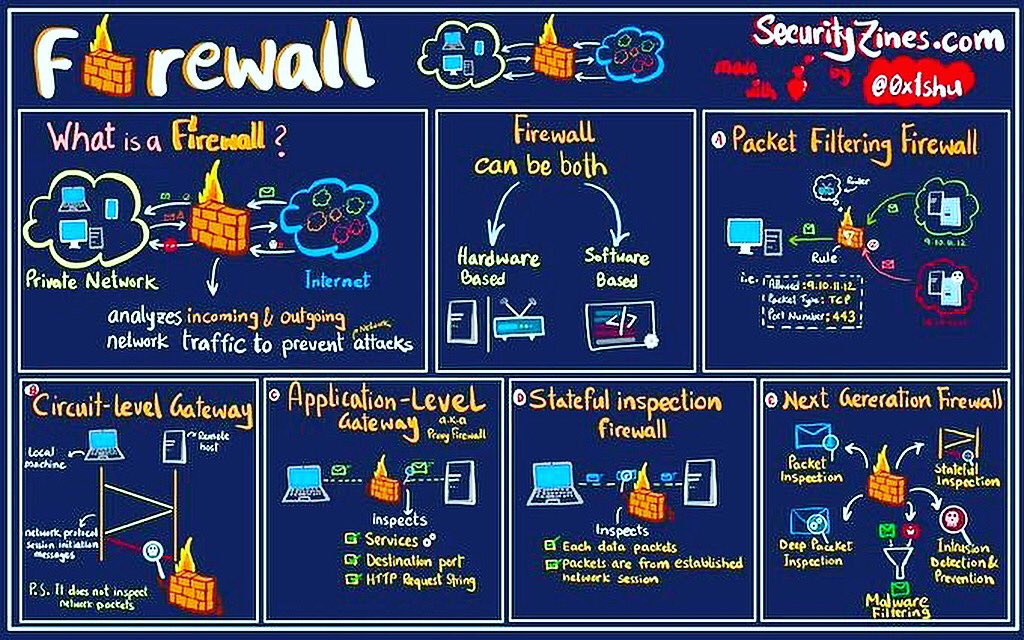 Firewall
SecurityZines.com
made with by
@0x1shu
What is a Firewall?
Private Network
Internet
analyzes incoming & outgoing
network traffic to prevent network attacks
Firewall
can be both
Hardware
Based
Software
Based
</>
A Packet Filtering Firewall
Router
9.10.11.12
Rule
i.e.
Allowed : 9.10.11.12
Packet Type : TCP
Port Number : 443
B
Circuit-level Gateway
Local
machine
Remote
host
network protocol
session initiation
messages
P.S. It does not inspect
network packets
C Application-Level
Gateway a.k.a
Proxy Firewall
Inspects
Services
Destination port
HTTP Request String
D Stateful inspection
firewall
Inspects
Each data packets
packets are from established
network session
E Next Gereration Firewall
Packet
Inspection
Stateful
Inspection
Deep Packet
Inspection
Intrusion
Detection &
Prevention
Malware
Filtering